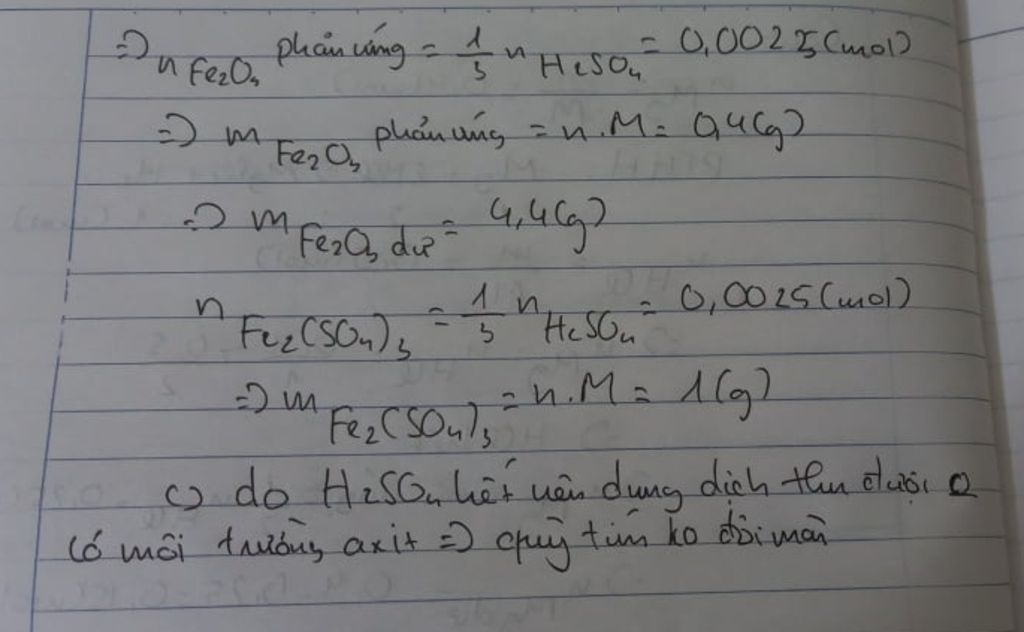 => n Fe2O3 phản ứng = 1/3 n H2SO4 = 0,0025 (mol)
=> m Fe2O3 phản ứng = n.M = 0,4 (g)
=> m Fe2O3 dư = 4,4 (g)
n Fe2(SO4)3 = 1/3 n H2SO4 = 0,0025 (mol)
=> m Fe2(SO4)3 = n.M = 1 (g)
c) do H2SO4 hết nên dung dịch thu được
có môi trường axit => quỳ tím ko đổi màu